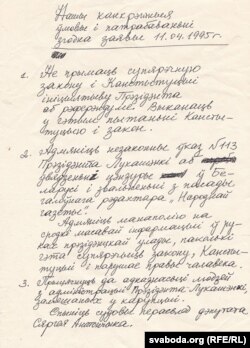 Нашы канкрэтныя
умовы і патрабаванні
згодна заявы 11.04.1995 г.
1. Не прымаць супярэчную
закону і Канстытуцыі
ініцыятыву Прэзідэнта
аб рэферэндуме. Выканаць
у гэтым пытанні Кансты-
туцыю і закон.
2. Адмяніць незаконны ўказ №113
Прэзідэнта Лукашэнкі аб
цэнзуры ў Бе-
ларусі і звальненні з пасады
галоўнага рэдактара „Народнай
газеты".
Адмяніць манаполію на
сродкі масавай інфармацыі ў ру-
ках прэзідэнцкай улады, паколькі
гэта супярэчыць закону, Кансты-
туцыі і парушае правы чалавека.
3. Прыцягнуць да адказнасці людзей
з адміністрацыі Прэзідэнта Лукашэнкі,
замешаных у карупцыі.
Спыніць судовы пераслед дэпутата
Сяргея Антончыка.
svaboda.org (RFE/RL)